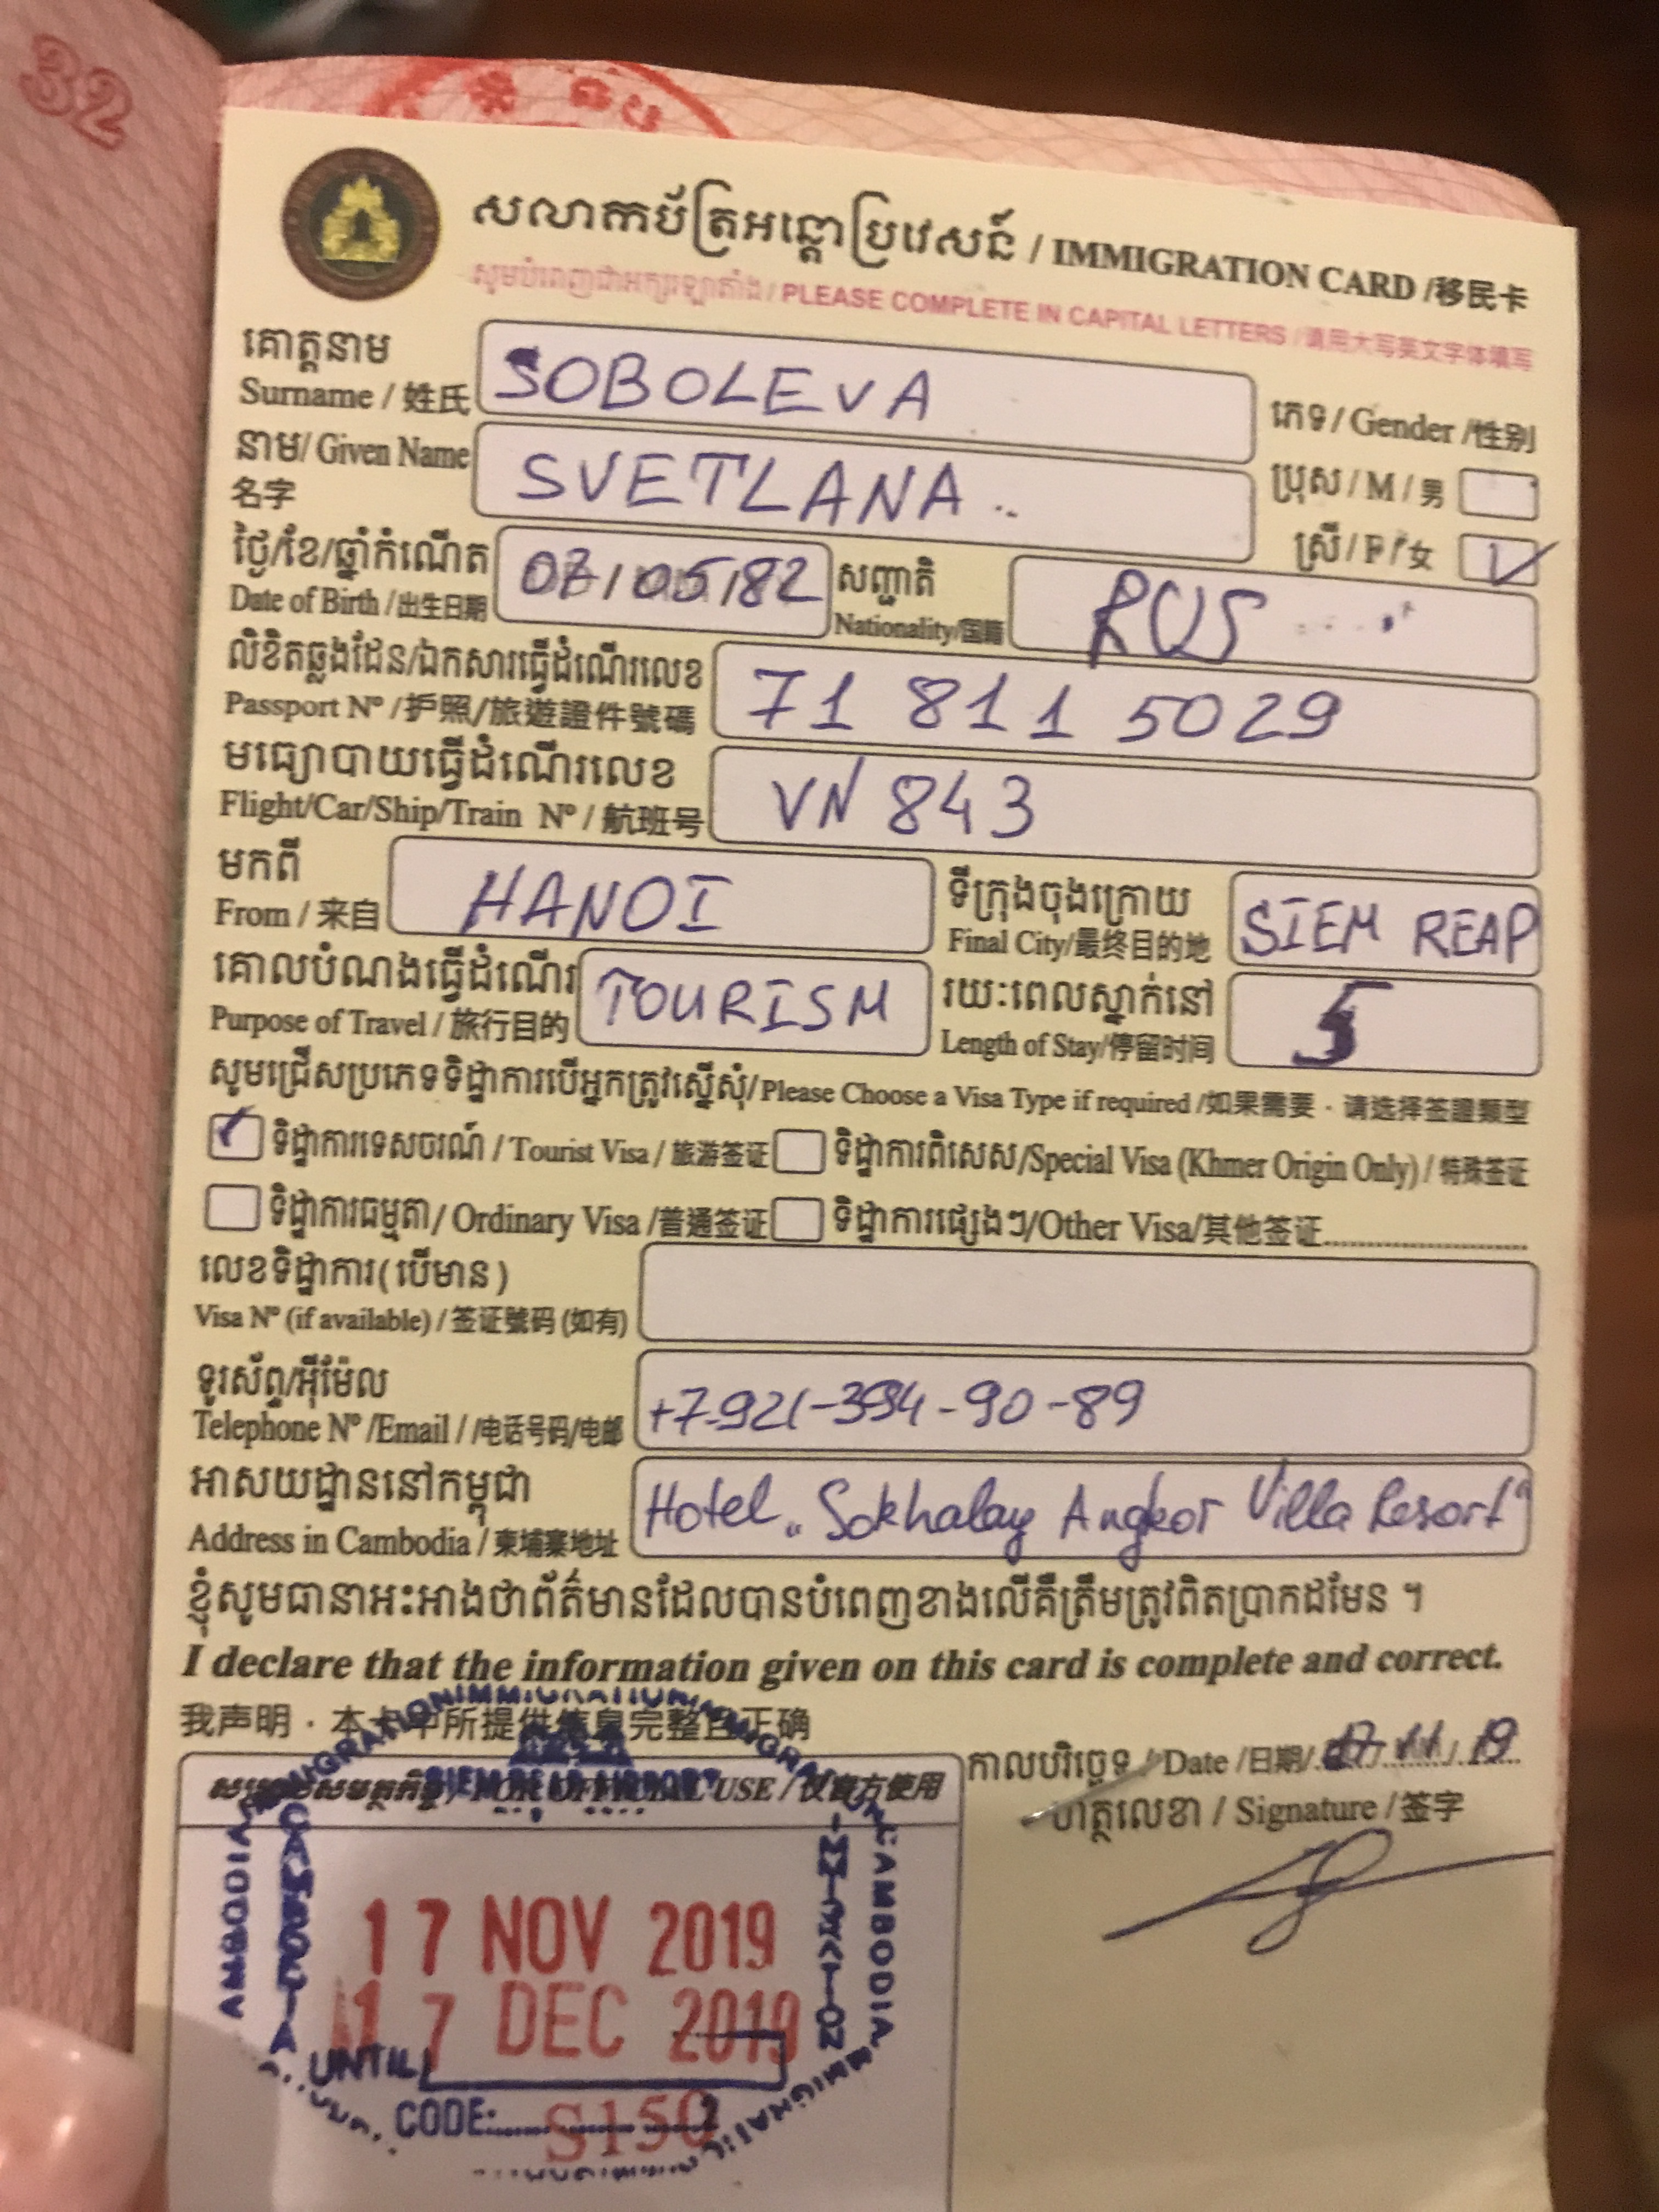 32
សលាកប័ត្រអន្តោប្រវេសន៍ / IMMIGRATION CARD /移民卡
សូមបំពេញជាអក្សរឡាតាំង / PLEASE COMPLETE IN CAPITAL LETTERS / 请用大写英文字体填写
គោត្តនាម
Surname / 姓氏 SOBOLEVA
ភេទ / Gender /性别
នាម/ Given Name
名字 SVETLANA
ប្រុស / M / 男
ស្រី / F / 女 V
ថ្ងៃ/ខែ/ឆ្នាំកំណើត
Date of Birth /出生日期 07/05/82
សញ្ជាតិ
Nationality/国籍 RUS
លិខិតឆ្លងដែន/ឯកសារធ្វើដំណើរលេខ
Passport Nº /护照/旅遊證件號碼 71 811 5029
មធ្យោបាយធ្វើដំណើរលេខ
Flight/Car/Ship/Train Nº / 航班号 VN 843
មកពី
From / 来自 HANOI
ទីក្រុងចុងក្រោយ
Final City/最终目的地 SIEM REAP
គោលបំណងធ្វើដំណើរ
Purpose of Travel / 旅行目的 TOURISM
រយៈពេលស្នាក់នៅ
Length of Stay/停留时间 5
សូមជ្រើសប្រភេទទិដ្ឋាការបើអ្នកត្រូវស្នើសុំ/Please Choose a Visa Type if required /如果需要 · 请选择签證類型
ទិដ្ឋាការទេសចរណ៍ / Tourist Visa / 旅游签证 ទិដ្ឋាការពិសេស/Special Visa (Khmer Origin Only) / 特殊签证
ទិដ្ឋាការធម្មតា/ Ordinary Visa /普通签证 ទិដ្ឋាការផ្សេងៗ/Other Visa/其他签证
លេខទិដ្ឋាការ(បើមាន)
Visa Nº (if available) / 签证號码 (如有)
ទូរស័ព្ទ/អ៊ីម៉ែល
Telephone Nº /Email / /电话号码/电邮 +7-921-394-90-89
អាសយដ្ឋាននៅកម្ពុជា
Address in Cambodia / 柬埔寨地址 Hotel „Sokhalay Angkor Villa Resort"
ខ្ញុំសូមធានាអះអាងថាព័ត៌មានដែលបានបំពេញខាងលើគឺត្រឹមត្រូវពិតប្រាកដមែន ។
I declare that the information given on this card is complete and correct.
我声明 · 本卡中所提供信息完整且正确
កាលបរិច្ឆេទ / Date /日期/ 17/11/19
FOR OFFICIAL USE / 仅官方使用
ហត្ថលេខា / Signature / 签字
IMMIGRATION
SIEM REAP AIRPORT
CAMBODIA
17 NOV 2019
17 DEC 2019
UNTIL
CODE: S150